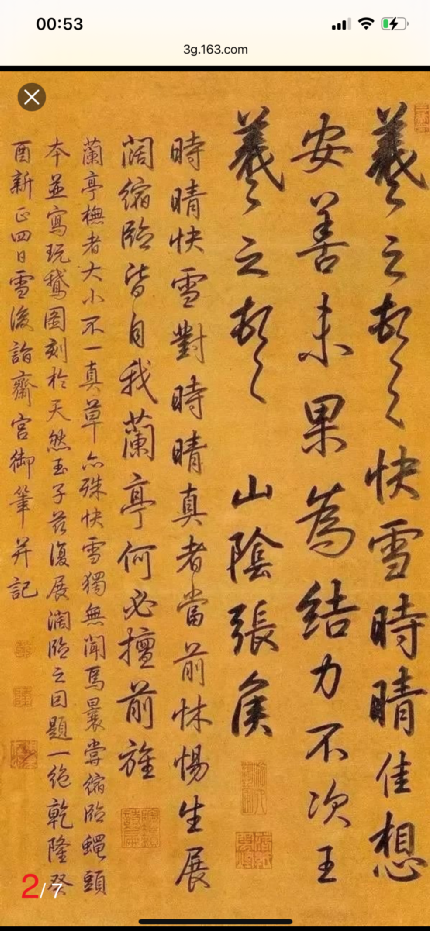 00:53
3g.163.com
羲之頓首快雪時晴佳想
安善未果為結力不次王
羲之頓首 山陰張侯
時晴快雪對時晴真者當前怵惕生展
闊縮臨皆自我蘭亭何必擅前旌
蘭亭橅者大小不一真草亦殊快雪獨無聞焉曩嘗縮臨蠅頭
本並寫玩鵞圖刻於天然玉子茲復展闊臨之因題一絕乾隆癸
酉新正四日雪後詣齋宮御筆并記
2/7